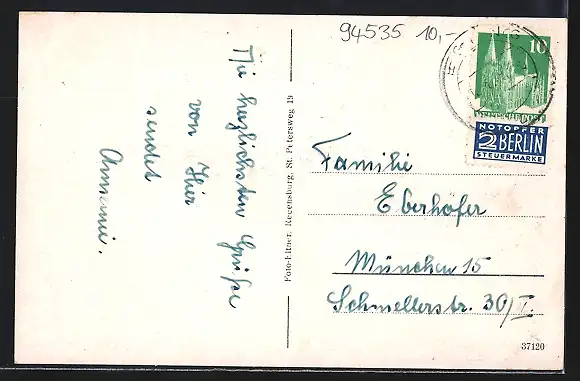 94535 10,-
Die herzlichsten Grüße
von Hier
sendet
Annami.
Foto-Eitner, Regensburg, St. Petersweg 19
10
DEUTSCHE POST
NOTOPFER
2 BERLIN
STEUERMARKE
Familie
Eberhofer
München 15
Schmellerstr. 30/I
37120